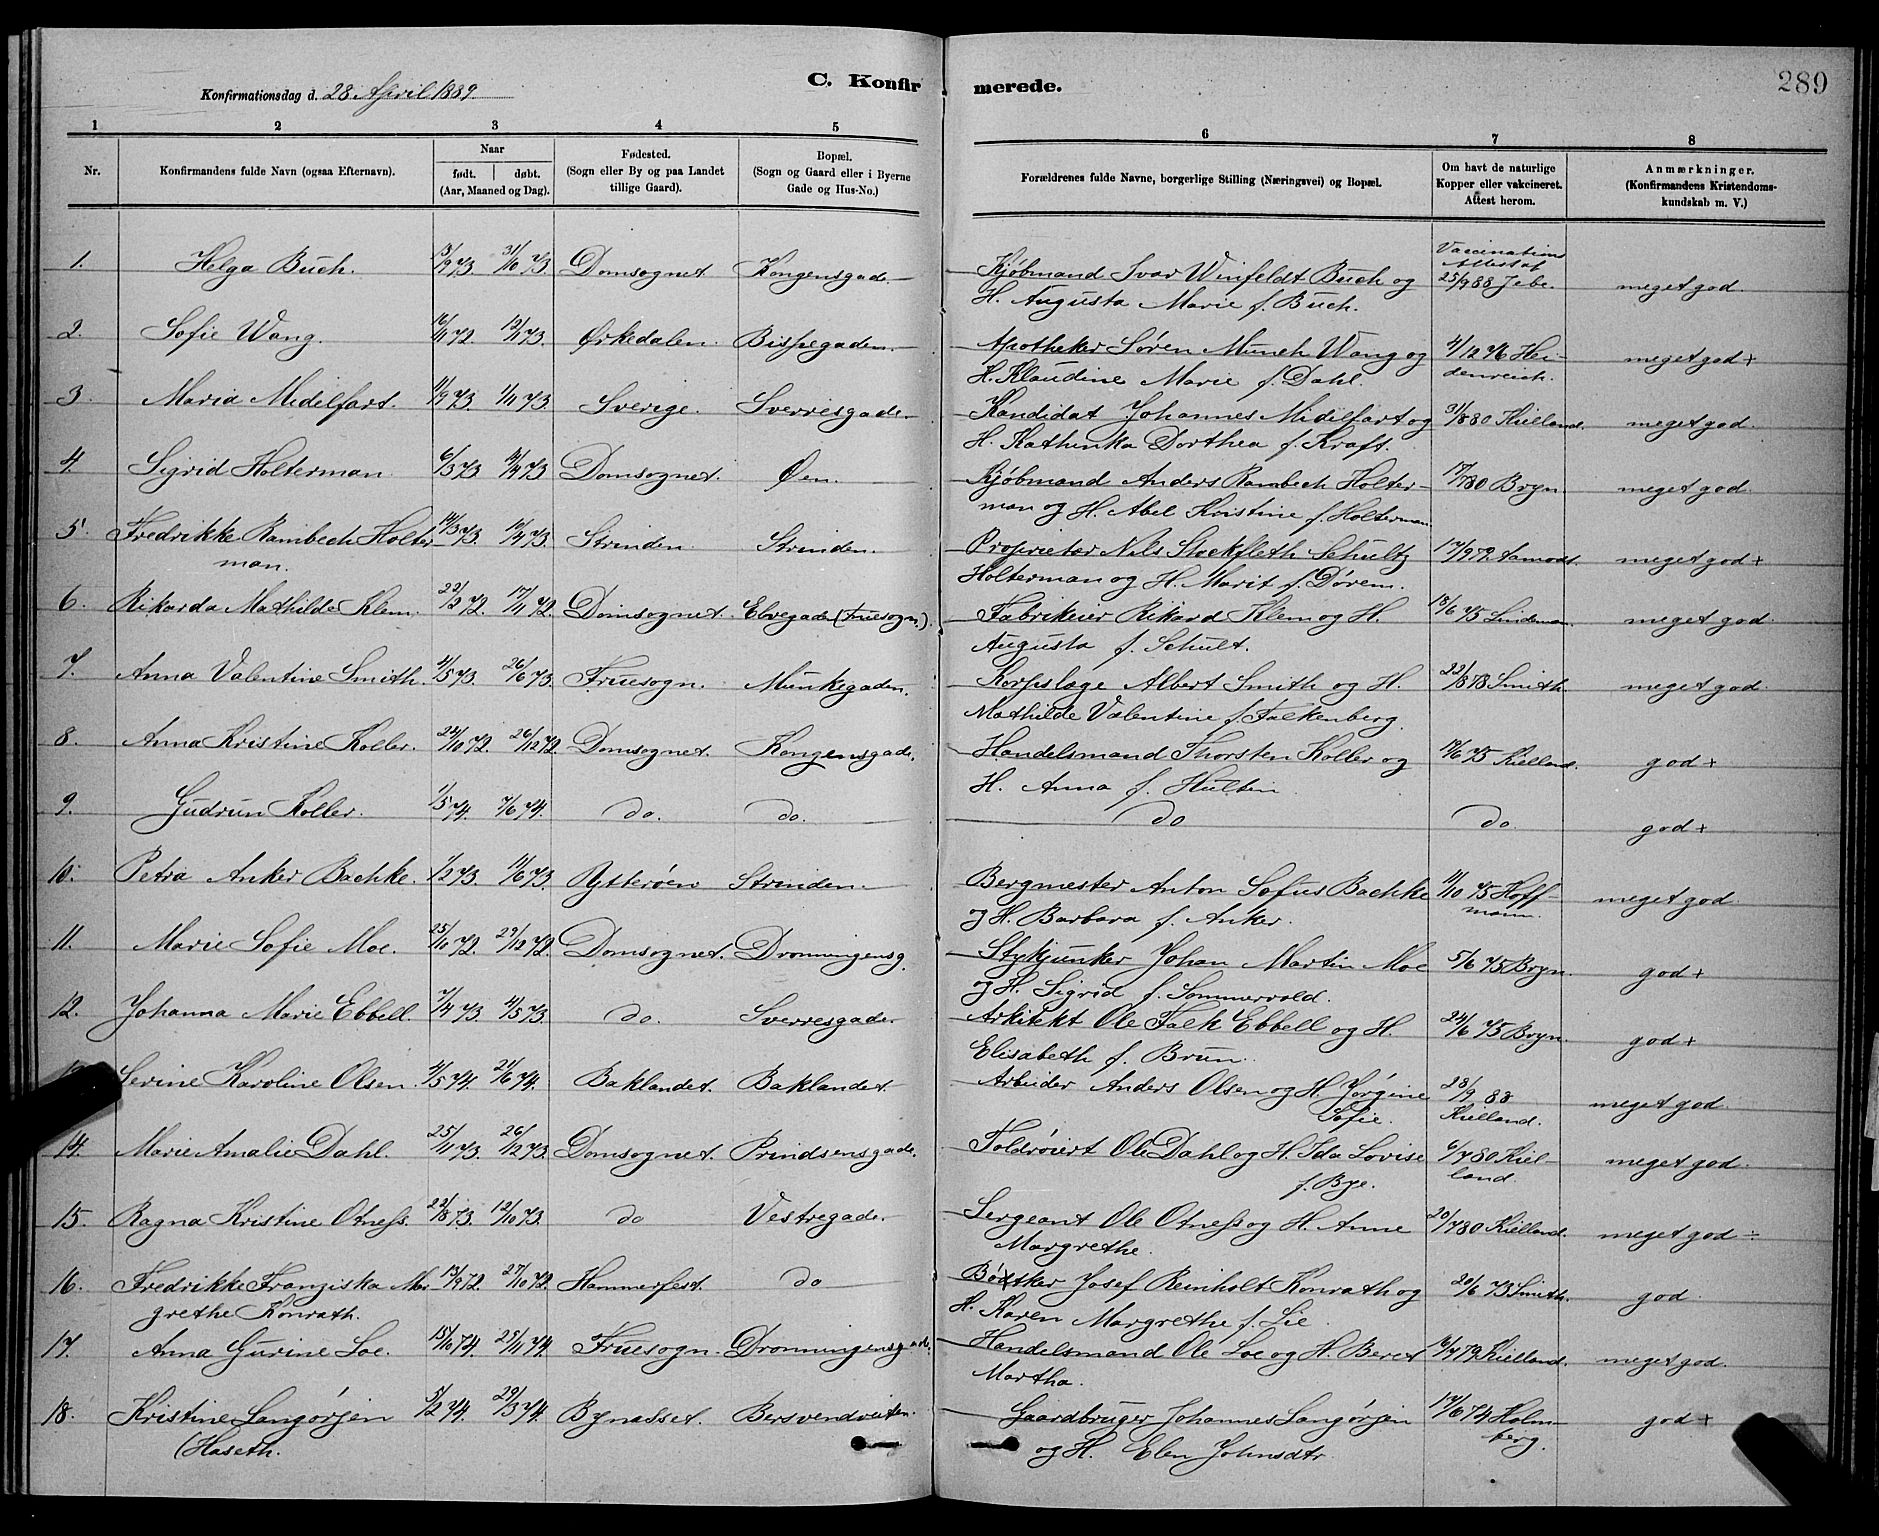 289
C. Konfirmerede.
Konfirmationsdag d. 28 April 1889.
1 2 3 4 5 6 7 8
Nr.
Konfirmandens fulde Navn (ogsaa Efternavn).
Naar
født. døbt.
(Aar, Maaned og Dag).
Fødested.
(Sogn eller By og paa Landet
tillige Gaard).
Bopæl.
(Sogn og Gaard eller i Byerne
Gade og Hus-No.)
Forældrenes fulde Navne, borgerlige Stilling (Næringsvei) og Bopæl.
Om havt de naturlige
Kopper eller vakcineret.
Attest herom.
Anmærkninger.
(Konfirmandens Kristendoms-
kundskab m. V.)
1. Helga Buch. 31/10 73. Domsognet. Kongensgade. Kjøbmand Ivar Winfeldt Buch og Vaccinations Attest af 25/9 88 meget god
H. Augusta Marie f. Buch.
2. Sofie Wang. 16/11 72. 12/1 73. Ørkedalen. Bispegaden. Apotheker Søren Munch Wang og 4/12 76 Hei- meget god +
H. Klaudine Marie f. Dahl. denreich.
3. Maria Midelfart. 11/9 73. 1/11 73. Sverige. Sverresgade. Kandidat Johannes Midelfart og 31/8 80 Kielland. meget god.
H. Kathinka Dorthea f. Kraft.
4. Sigrid Holterman. 6/3 73. Domsognet. Øen. Kjøbmand Anders Rambech Holter- 17/7 80 Bryn. meget god.
man og H. Abel Kristine f. Holterman
5. Fredrikke Rambech Holter 14/3 73. Strinden. Strinden. Proprietær Nils Stockfleth Schultz 17/9 79 Aamodt. meget god +
man. Holterman og H. Marit f. Dørem.
6. Rikarda Mathilde Klem. 17/11 72. Domsognet. Elvegade (Fruesogn.) Fabrikeier Rikard Klem og H. 18/6 75 Lindeman. meget god.
Augusta f. Schult.
7. Anna Valentine Smith. 4/5 73. 26/6 73. Fruesogn. Munkegaden. Korpslæge Albert Smith og H. 22/8 78 Smith. meget god.
Mathilde Valentine f. Falkenberg.
8. Anna Kristine Koller. 24/10 72. 26/12 72 Domsognet. Kongensgade. Handelsmand Thorsten Koller og 19/6 75 Kielland. god +
H. Anna f. Hultin.
9. Gudrun Koller. 1/5 74. 7/6 74. do. do. do do god +
10. Petra Anker Bachke. 1/2 73. 11/6 73. Ytterøen Strinden. Bergmester Anton Sofus Bachke 11/10 75 Hoff- meget god
og H. Barbara f. Anker. mann.
11. Marie Sofie Moe. 25/10 72. 29/12 72. Domsognet. Dronningensg. Stykjunker Johan Martin Moe 5/6 75 Bryn. god +
og H. Sigrid f. Sommervold.
12. Johanna Marie Ebbell. 7/4 73. 4/5 73. do. Sverresgade. Arkitekt Ole Falk Ebbell og H. 24/6 75 Bryn. god +
Elisabeth f. Brun.
Serine Karoline Olsen. 4/5 74. 21/6 74. Baklandet. Baklandet. Arbeider Anders Olsen og H. Jørgine 28/9 88 meget god.
Sofie. Kielland.
14. Marie Amalie Dahl. 25/11 73. 26/12 73. Domsognet. Prindsensgade. Toldroiert Ole Dahl og H. Ida Lovise 6/7 80 Kiel- meget god.
f. Bye. land.
15. Ragna Kristine Otness. 22/8 73. 12/10 73. do Vestregade. Sergeant Ole Otness og H. Anne 20/7 80 Kielland. meget god ÷
Margrethe.
16. Fredrikke Franziska Mar 13/9 72. 27/10 72. Hammerfest. do Bødker Josef Reinholt Konrath og 20/6 73 Smith. god
grethe Konrath. H. Karen Margrethe f. Lie
17. Anna Gurine Loe. 15/10 74. 29/11 74. Fruesogn. Dronningensgade. Handelsmand Ole Loe og H. Beret 16/7 79 Kielland. meget god.
Martha.
18. Kristine Langørjen 5/2 74. 29/3 74. Bynæsset. Bersvendveiten. Gaardbruger Johannes Langørjen 17/6 74 Holm- god +
(Haseth. og H. Elen Johnsdtr berg.